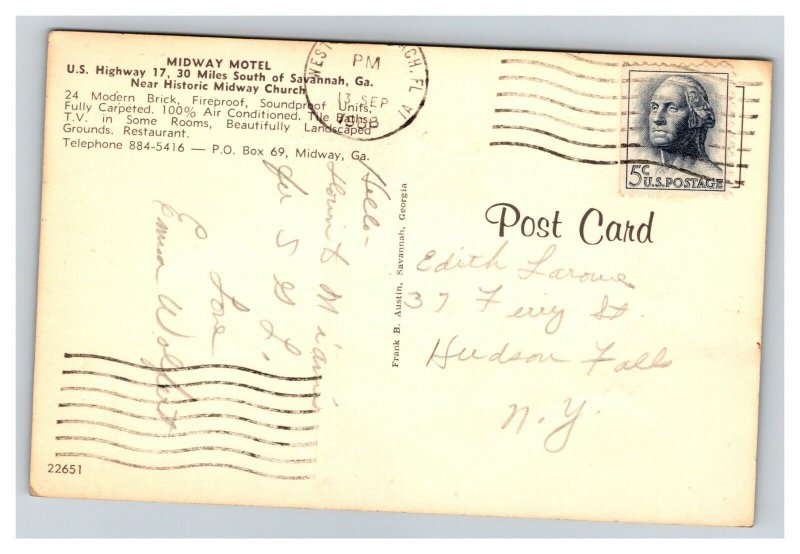 MIDWAY MOTEL
U.S. Highway 17, 30 Miles South of Savannah, Ga.
Near Historic Midway Church
24 Modern Brick, Fireproof, Soundproof Units,
Fully Carpeted. 100% Air Conditioned. Tile Baths,
T.V. in Some Rooms, Beautifully Landscaped
Grounds. Restaurant.
Telephone 884-5416 — P.O. Box 69, Midway, Ga.
WEST BEACH, FL
PM
13 SEP
1968
5c
U.S. POSTAGE
Post Card
Frank B. Austin, Savannah, Georgia
Hello-
Miami
for 5
Love
Emma
Edith
37 St.
Hudson Falls
N.Y.
22651